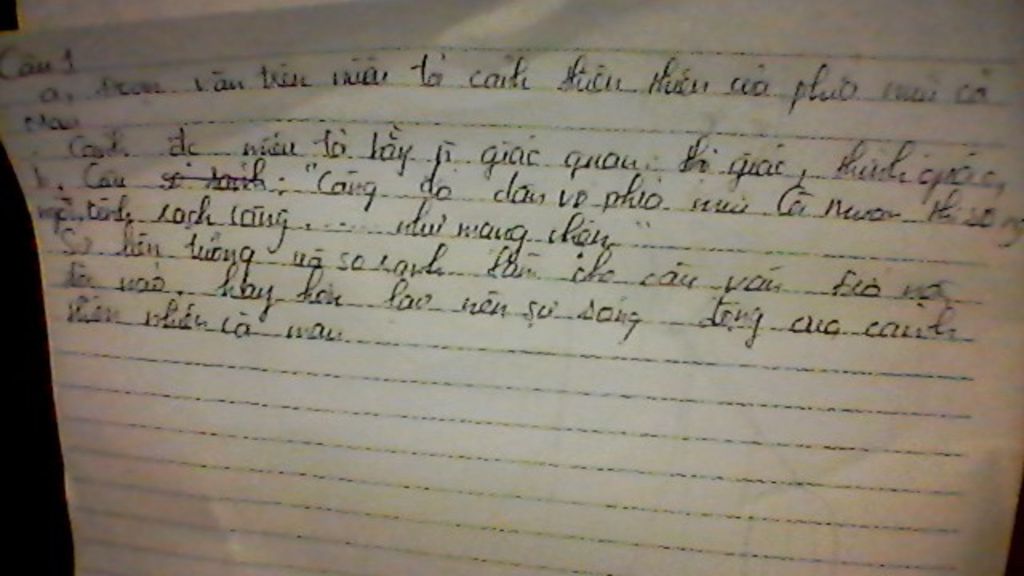 Câu 1
a, Đoạn văn trên miêu tả cảnh thiên nhiên của phía mũi cà
Mau
Cảnh đc miêu tả bằng giác quan: thị giác, thính giác,
b, Câu so sánh: "Càng đổ dần về phía mũi Cà Mau thì sông
ngòi, kênh rạch càng ..... như mạng nhện"
Sự liên tưởng và so sánh làm cho câu văn
hay hơn tạo nên sự sống động của cảnh
thiên nhiên cà mau